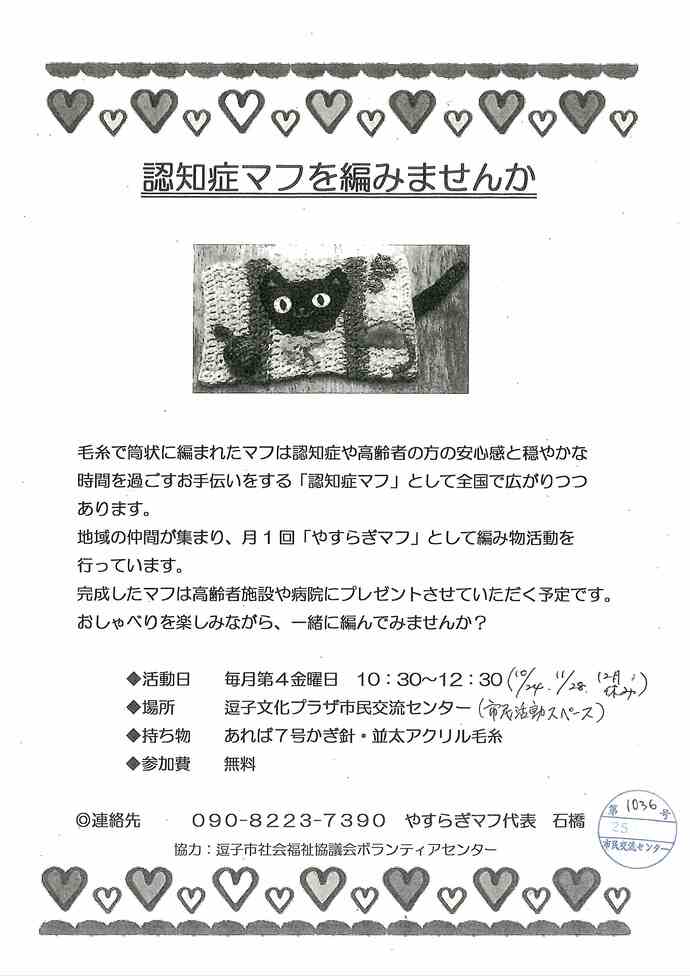 認知症マフを編みませんか
毛糸で筒状に編まれたマフは認知症や高齢者の方の安心感と穏やかな
時間を過ごすお手伝いをする「認知症マフ」として全国で広がりつつ
あります。
地域の仲間が集まり、月1回「やすらぎマフ」として編み物活動を
行っています。
完成したマフは高齢者施設や病院にプレゼントさせていただく予定です。
おしゃべりを楽しみながら、一緒に編んでみませんか？
◆活動日 毎月第4金曜日 10：30～12：30(10/24、11/28、12月休み)
◆場所 逗子文化プラザ市民交流センター(市民活動スペース)
◆持ち物 あれば7号かぎ針・並太アクリル毛糸
◆参加費 無料
◎連絡先 090-8223-7390 やすらぎマフ代表 石橋
協力：逗子市社会福祉協議会ボランティアセンター
第1036号
25
市民交流センター